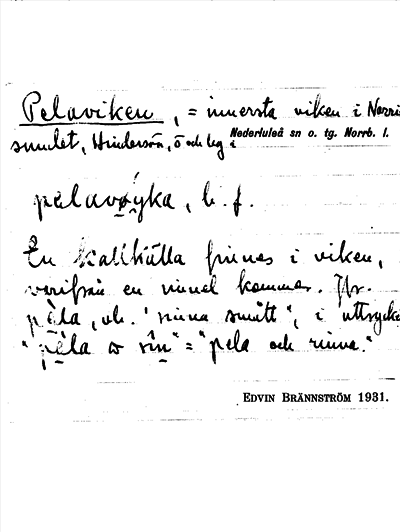 Pelaviken, = innersta viken i Norri
sundet, Hindersön, ö och lög i
Nederluleå sn o. tg. Norrb. l.
pelavøyka, b. f.
En kallkälla finnes i viken,
varifrån en rännel kommer. Jfr.
pela, vb. 'rinna smått', i uttrycke
"pela o rin" = "pela och rinna."
EDVIN BRÄNNSTRÖM 1931.